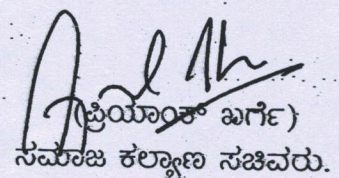 (ಪ್ರಿಯಾಂಕ್ ಖರ್ಗೆ)
ಸಮಾಜ ಕಲ್ಯಾಣ ಸಚಿವರು.